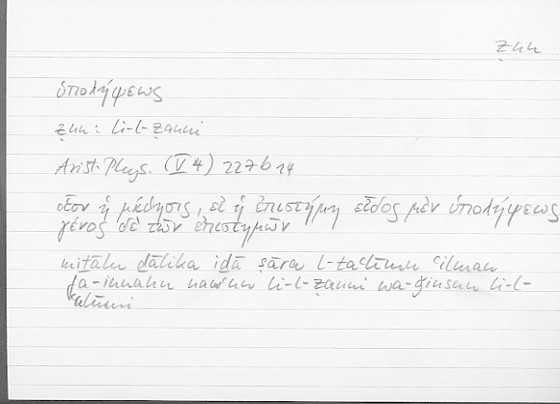 ẓnn
ὑπολήψεως
ẓnn: li-l-ẓanni
Arist. Phys. (V 4) 227b14
οἷον ἡ μάθησις, εἰ ἡ ἐπιστήμη εἶδος μὲν ὑπολήψεως
γένος δὲ τῶν ἐπιστημῶν
miṯālu ḏālika iḏā ṣāra l-taʿlīmu ʿilman
fa-innahu nawʿun li-l-ẓanni wa-ǧinsun li-l-
ʿulūmi